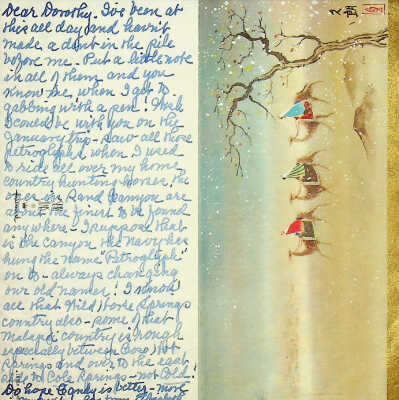 Dear Dorothy. I've been at
this all day and haven't
made a dent in the pile
before me. Put a little note
in all of them and you
know me, when I get to
gabbing with a pen! Wish
I could be with you on the
January trip - saw all those
petroglyphs when I used
to ride all over my home
country hunting horses! The
ones in Sand Canyon are
about the finest to be found
anywhere - I suppose that
is the canyon the Navy has
hung the name "Petroglyph"
on to - always changing
our old names! I know
all that Wild Horse Springs
country also - some of that
Malapai country is rough
especially between Coso Hot
Springs and over to the east
side to Cole Springs - not Cold!
Do hope is better - more